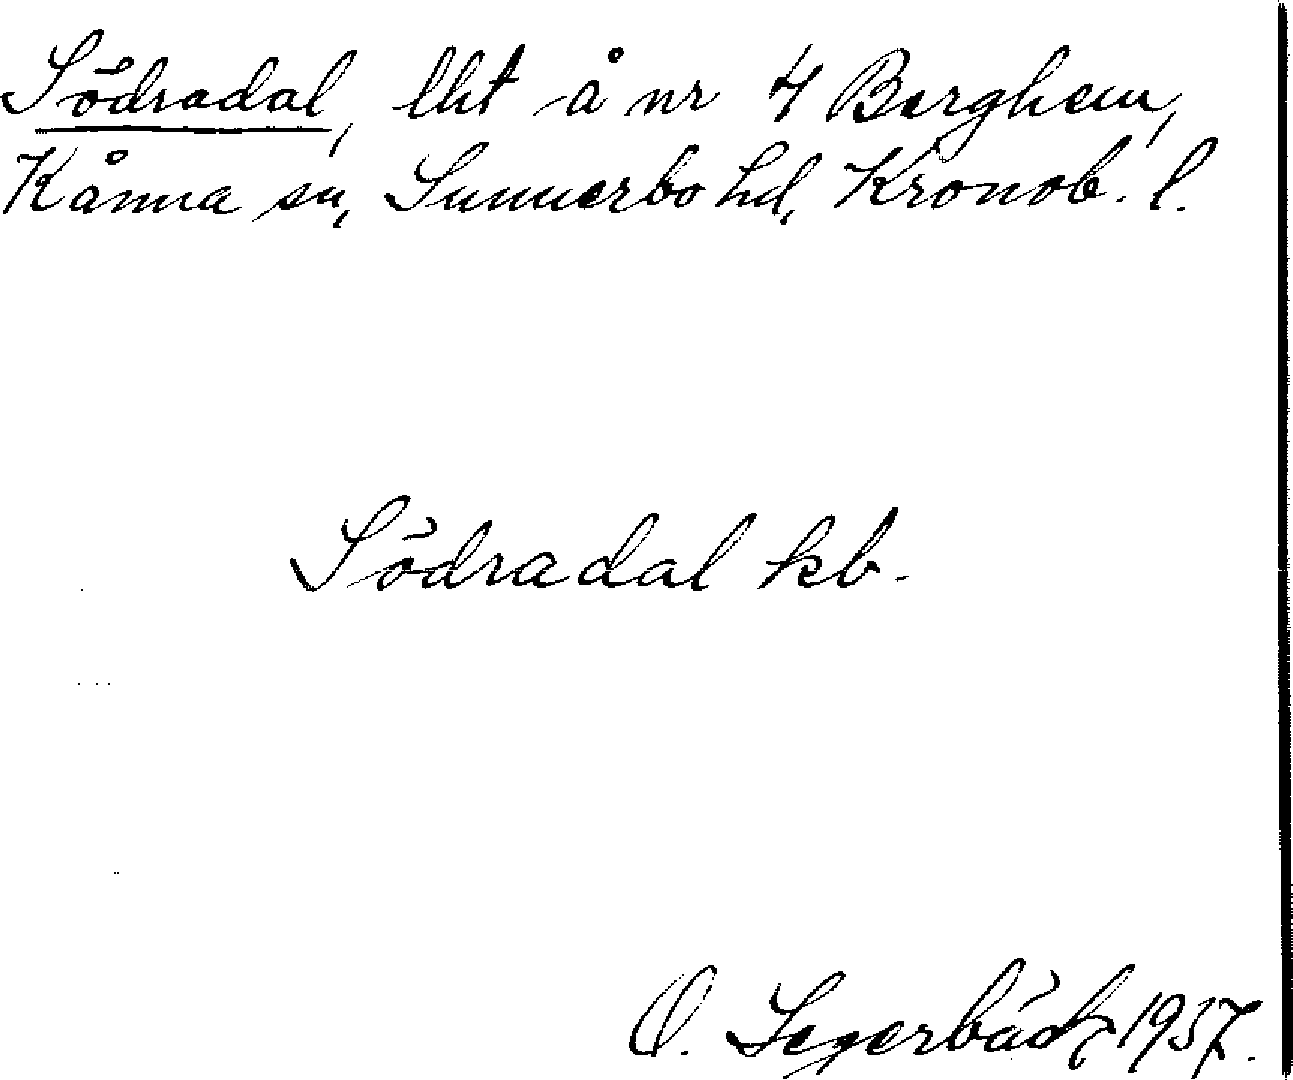 Södradal, lht å nr 4 Berghem,
Kånna sn, Sunnerbo hd, Kronob. l.
Södradal kb.
O. Segerbäck 1957.